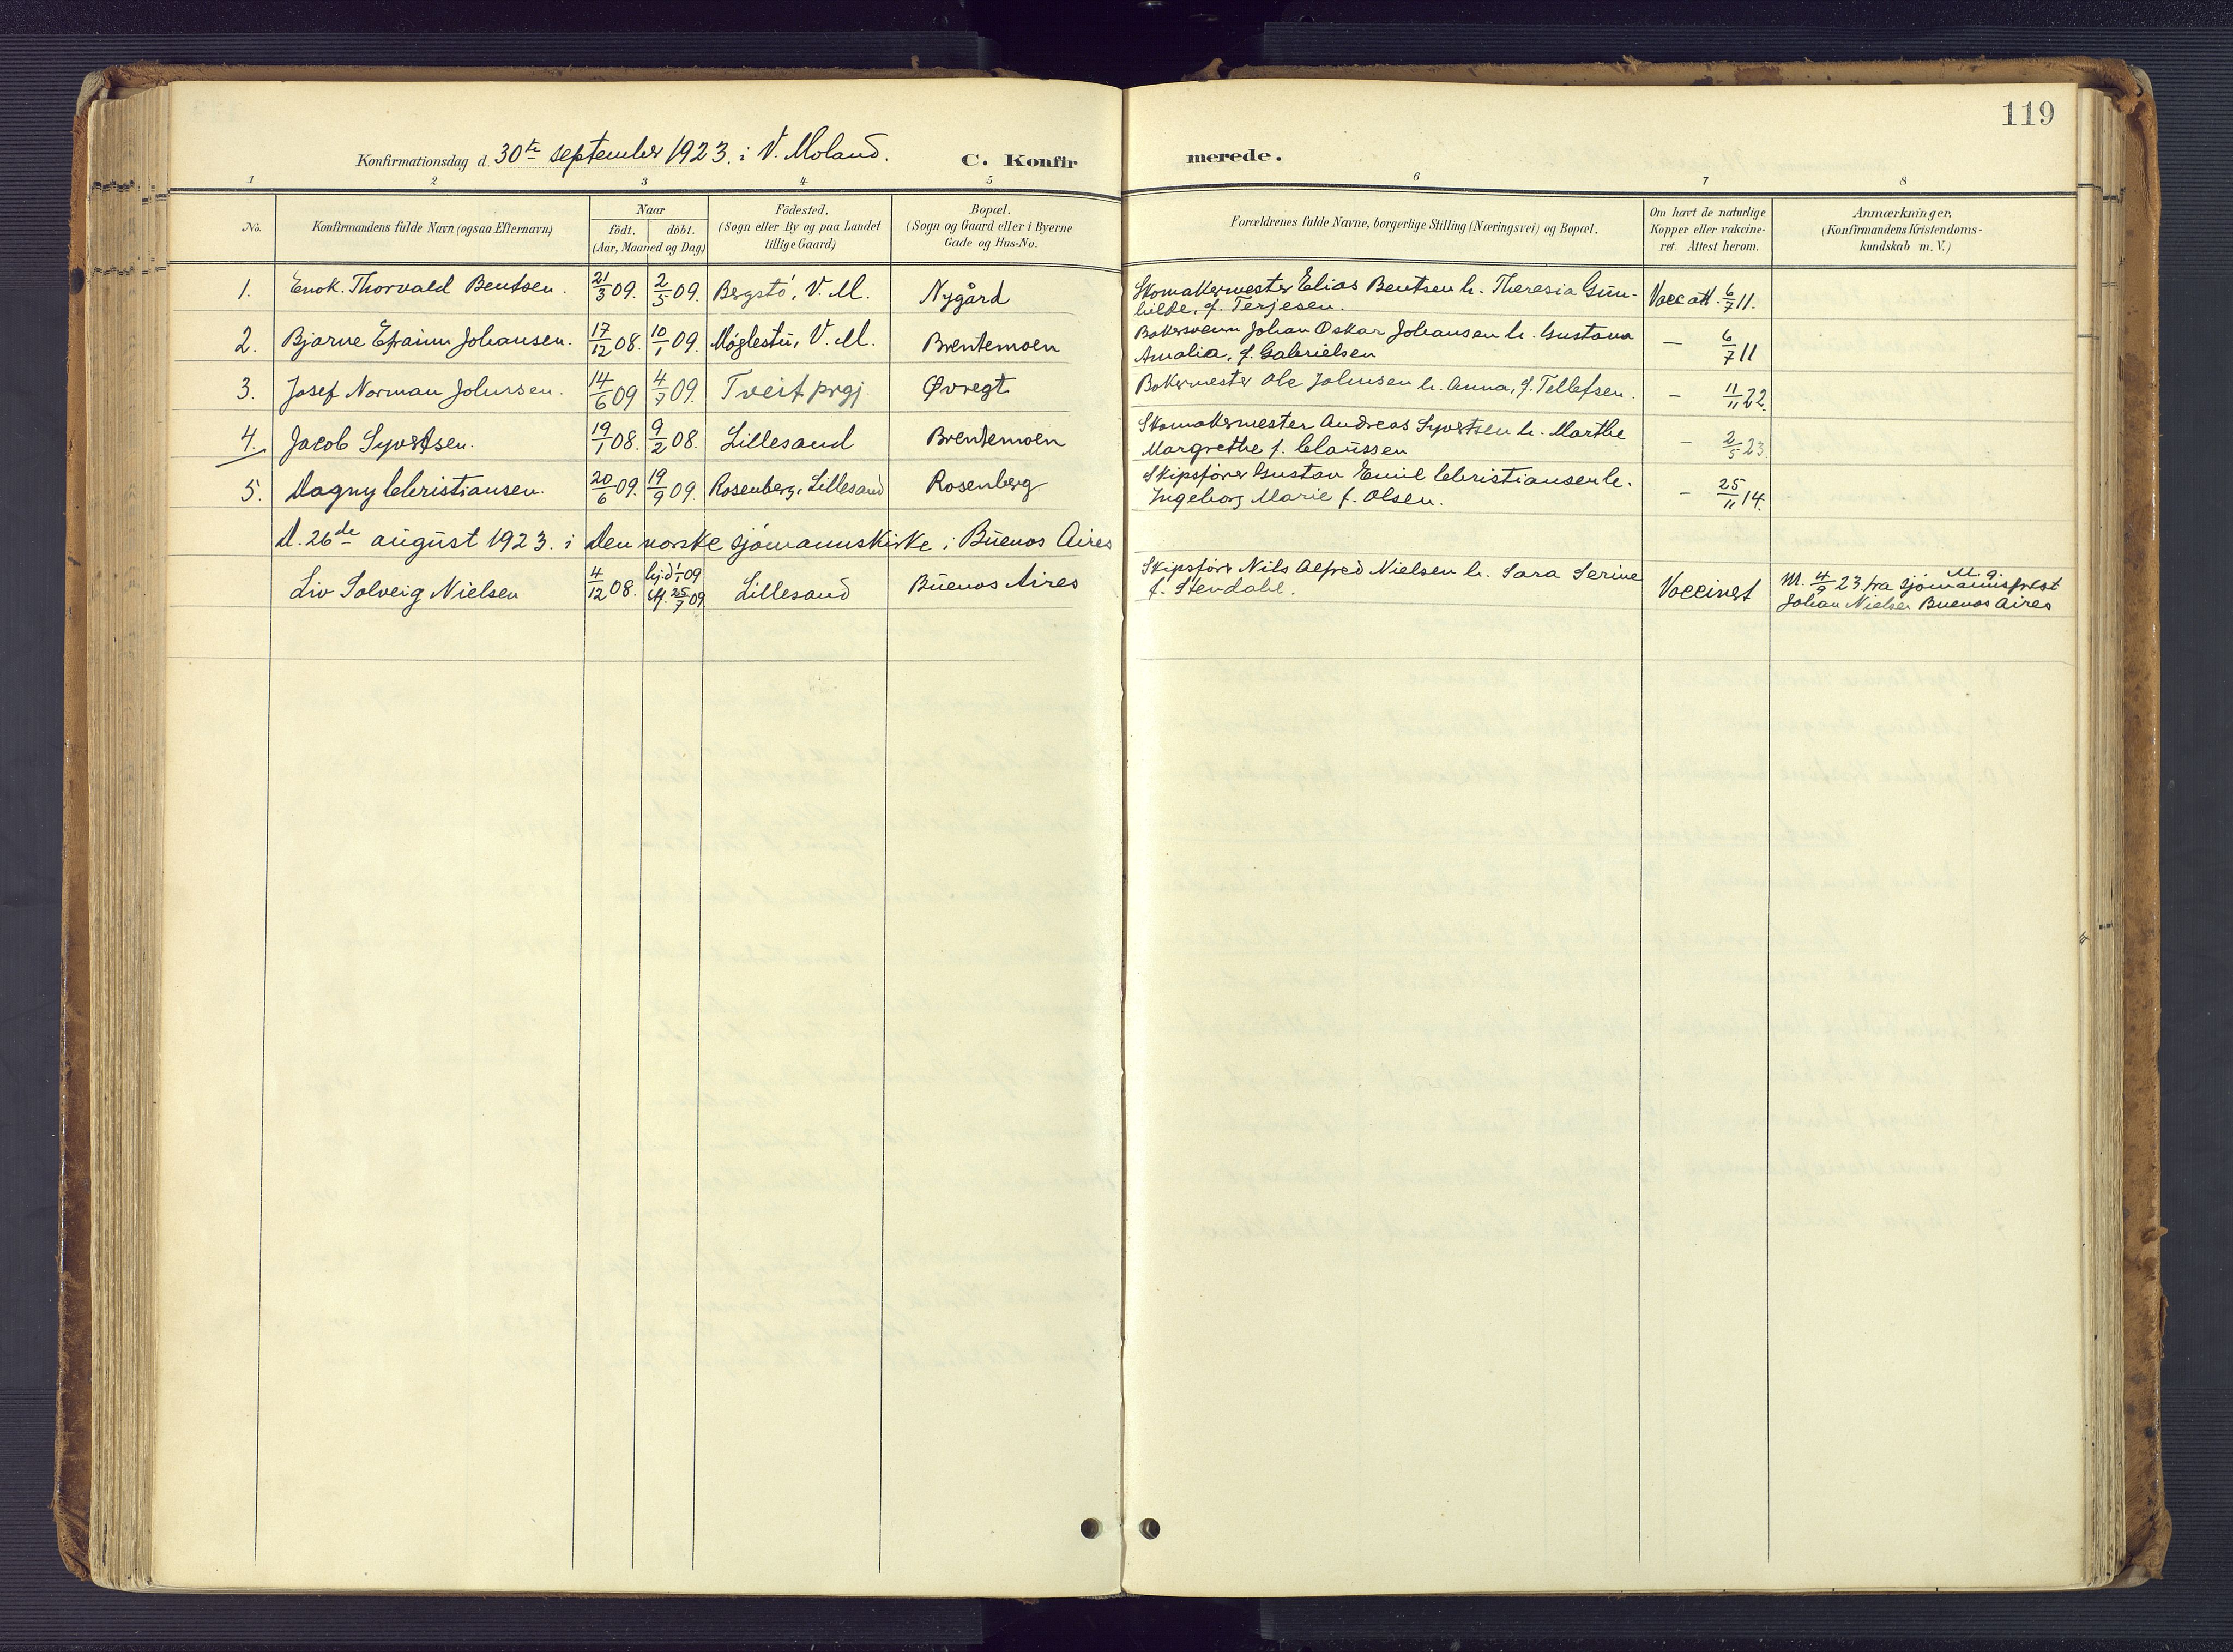 119
Konfirmationsdag d. 30te september 1923. i V. Moland. C. Konfirmerede.
1 2 3 4 5 6 7 8
No. Konfirmandens fulde Navn (ogsaa Efternavn) Naar födt. döbt. (Aar, Maaned og Dag) Födested. (Sogn eller By og paa Landet tillige Gaard) Bopæl. (Sogn og Gaard eller i Byerne Gade og Hus-No. Forældrenes fulde Navne, borgerlige Stilling (Næringsvei) og Bopæl. Om havt de naturlige Kopper eller vakcineret. Attest herom. Anmærkninger, (Konfirmandens Kristendomskundskab m. V.)
1. Enok. Thorvald Bentsen. 21/3 09. 2/5 09. Bergstö, V. M. Nygård Skomakermester Elias Bentsen h. Theresia Gun-
hilde, f. Terjesen. Vacc att. 6/7 11.
2. Bjarne Efraim Johansen. 17/12 08. 10/1 09. Möglestu, V. M. Brentemoen Bakersvenn Johan Oskar Johansen h. Gustava
Amalia, f. Gabrielsen — 6/7 11
3. Josef Norman Johnsen. 14/6 09 4/7 09. Tveit prgj. Øvregt Bakermester Ole Johnsen h. Anna, f. Tellefsen. — 11/11 22.
4. Jacob Syvertsen. 19/1 08. 9/2 08. Lillesand Brentemoen Skomakermester Andreas Syvertsen h. Marthe
Margrethe f. Claussen — 2/5 23.
5. Dagny Christiansen. 20/6 09. 19/9 09. Rosenberg, Lillesand Rosenberg Skipsförer Gustav Emil Christiansen h.
Ingeborg Marie f. Olsen. — 25/11 14.
D. 26de august 1923. i Den norske sjömannskirke i Buenos Aires
Liv Solveig Nielsen 4/12 08. hj.d 1/1 09 25/7 09 Lillesand Buenos Aires Skipsförer Nils Alfred Nielsen h. Sara Serine
f. Stendahl. Vaccinert M. 4/9 23 fra sjömannsprest
Johan Nielsen Buenos Aires